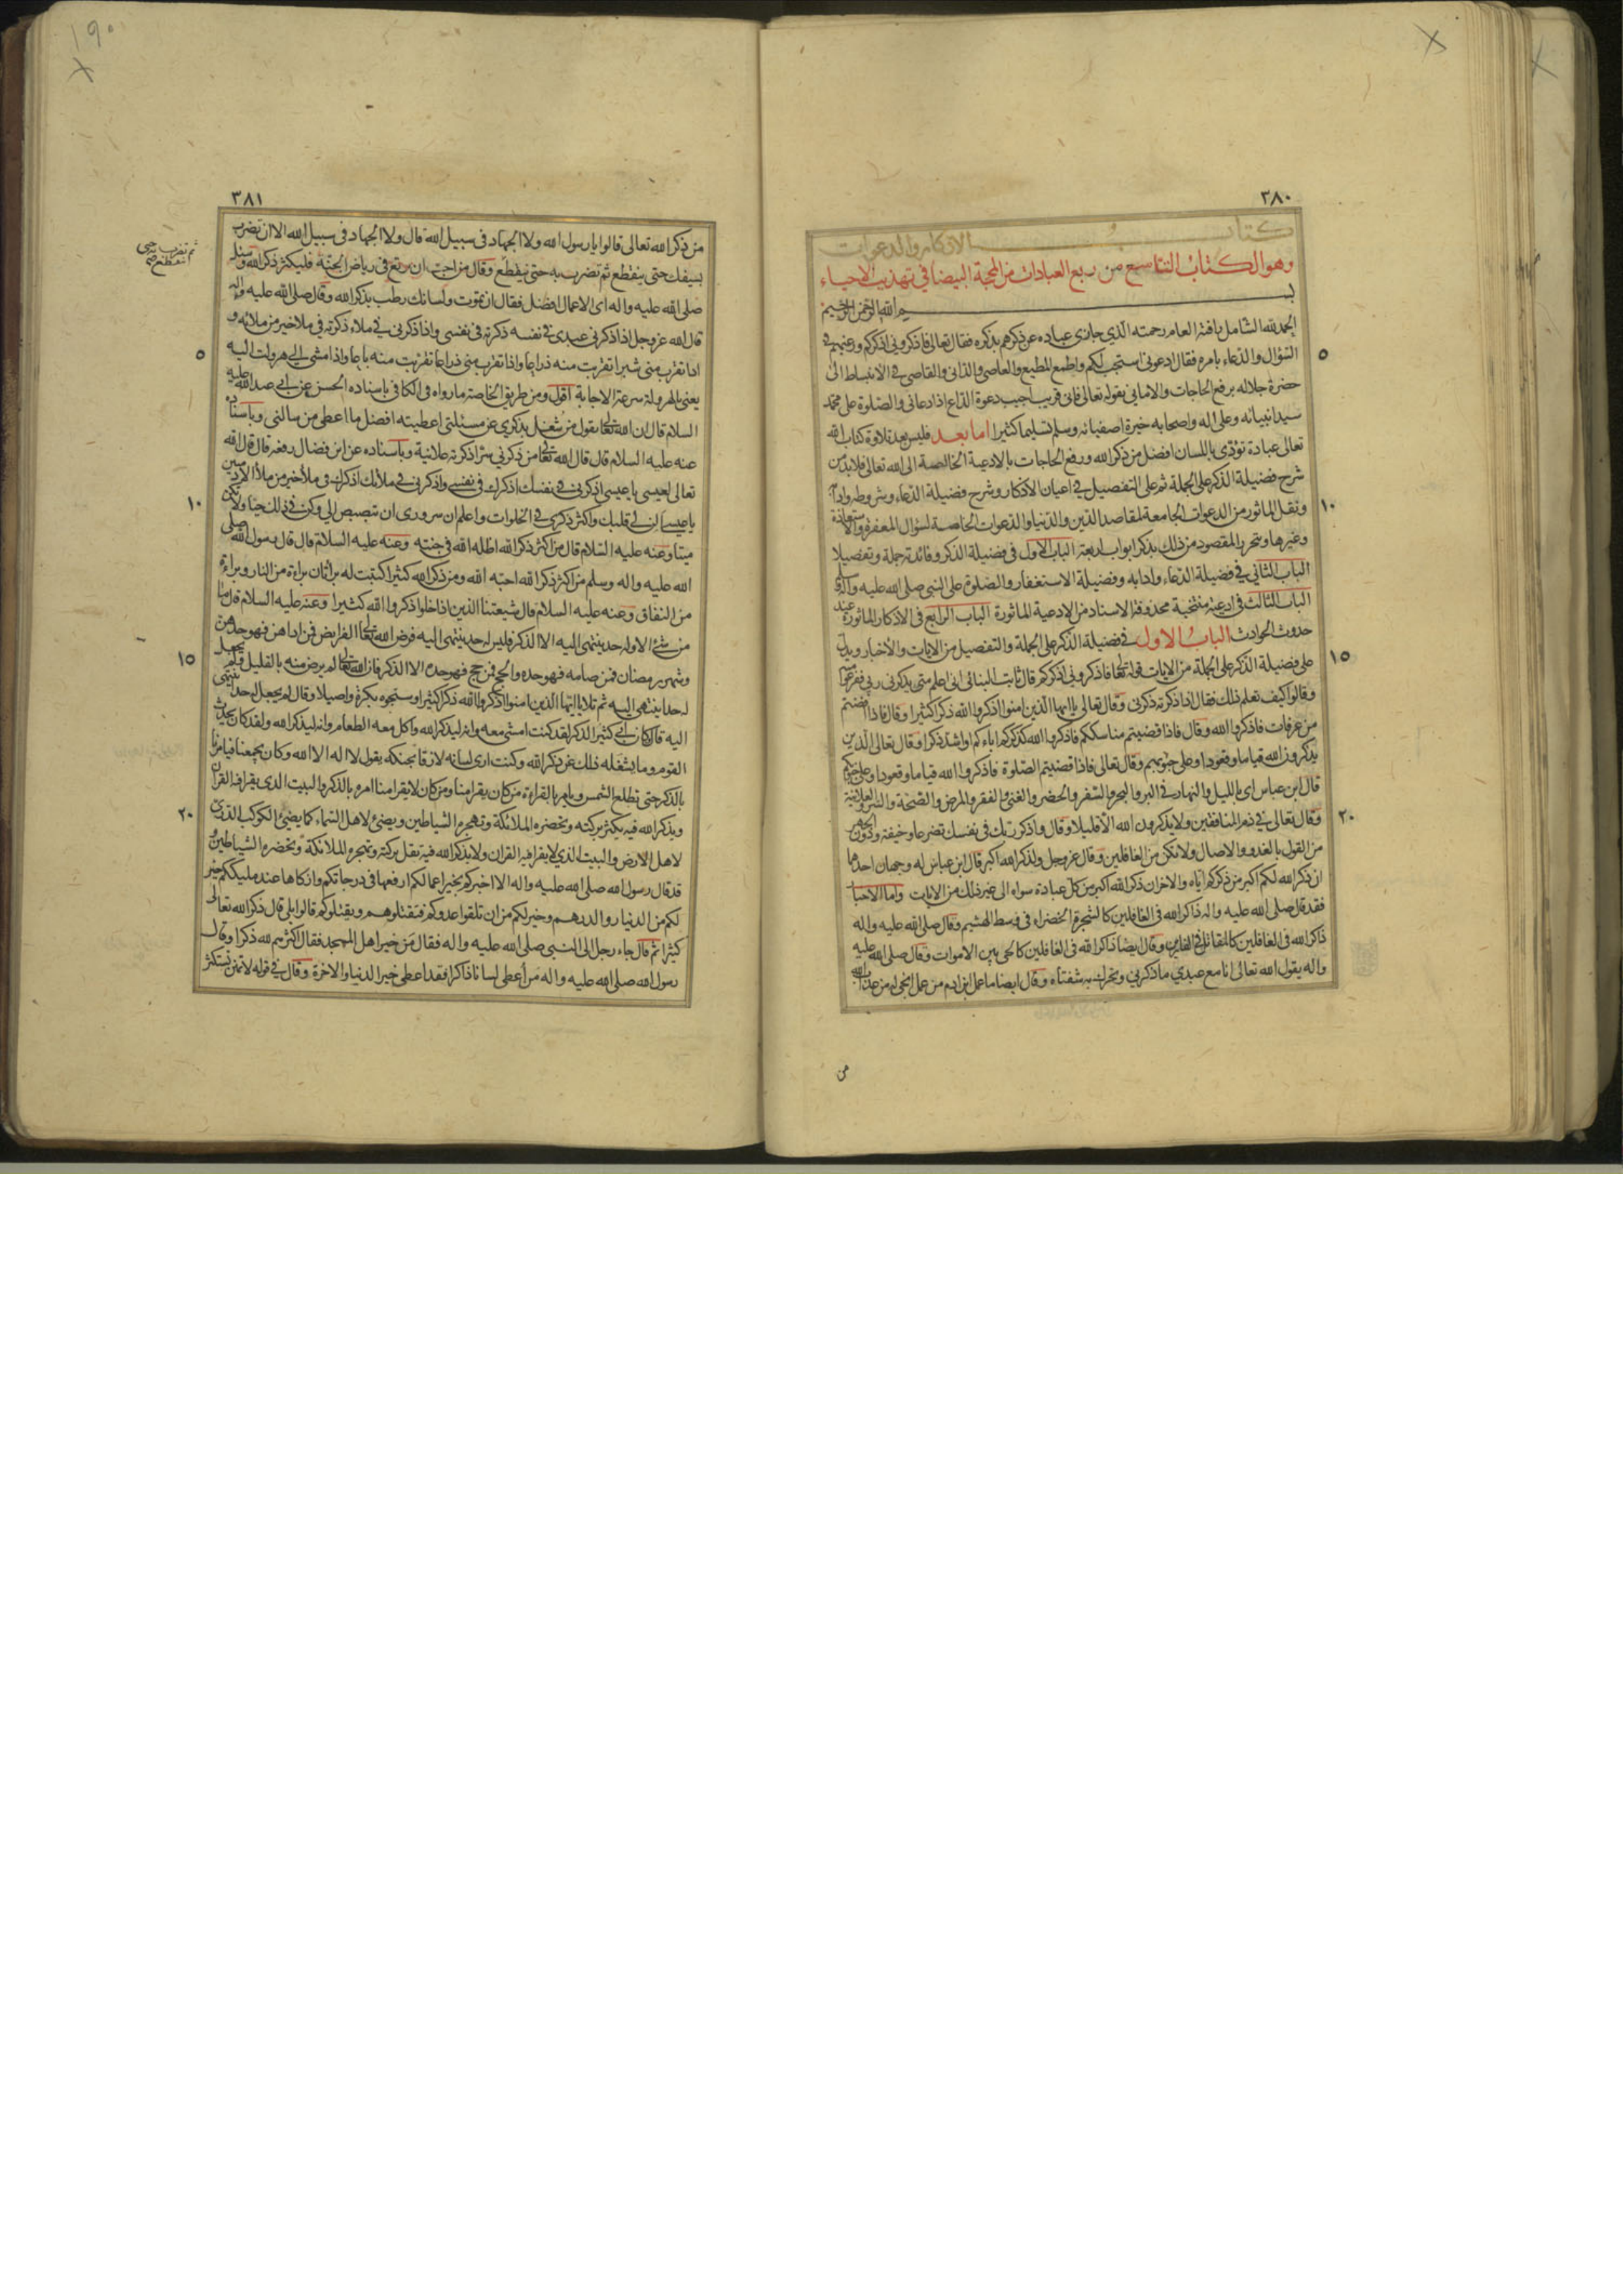 ٣٨٠
كتاب الاذكار والدعوات
وهو الكتاب التاسع من ربع العبادات من المحجة البيضا في تهذيب الاحياء
بسم الله الرحمن الرحيم
الحمد لله الشامل رافته العام رحمته الذي جازى عباده عن ذكرهم بذكره فقال تعالى فاذكروني اذكركم ورغبهم في
السؤال والدعاء بامره فقال ادعوني استجب لكم واطمع المطيع والعاصي والداني والقاصي في الانبساط الى
حضرة جلاله برفع الحاجات والاماني بقوله تعالى فاني قريب اجيب دعوة الداع اذا دعاني والصلوة على محمد
سيد انبيائه وعلى اله واصحابه خيرة اصفيائه وسلم تسليما كثيرا اما بعد فليس بعد تلاوة كتاب الله
تعالى عبادة تؤدى باللسان افضل من ذكر الله ورفع الحاجات بالادعية الخالصة الى الله تعالى فلا بد من
شرح فضيلة الذكر على الجملة ثم على التفصيل في اعيان الاذكار وشرح فضيلة الدعاء وشروطه وادابه
ونقل الماثور من الدعوات الجامعة لمقاصد الدين والدنيا والدعوات الخاصة لسؤال المغفرة والاستعاذة ١٠
وغيرها ويتحرر المقصود من ذلك بذكر ابواب اربعة الباب الاول في فضيلة الذكر وفائدته جملة وتفصيلا
الباب الثاني في فضيلة الدعاء وادابه وفضيلة الاستغفار والصلوة على النبي صلى الله عليه واله
الباب الثالث في ادعية منتخبة محذوفة الاسناد من الادعية الماثورة الباب الرابع في الاذكار الماثورة عند
حدوث الحوادث الباب الاول في فضيلة الذكر على الجملة والتفصيل من الايات والاخبار ويدل
على فضيلة الذكر على الجملة من الايات قوله تعالى فاذكروني اذكركم قال ثابت البناني اني اعلم متى يذكرني ربي ففزعوا منه ١٥
وقالوا كيف تعلم ذلك فقال اذا ذكرته ذكرني وقال تعالى يا ايها الذين امنوا اذكروا الله ذكرا كثيرا وقال فاذا افضتم
من عرفات فاذكروا الله وقال فاذا قضيتم مناسككم فاذكروا الله كذكركم اباءكم او اشد ذكرا وقال تعالى الذين
يذكرون الله قياما وقعودا وعلى جنوبهم وقال تعالى فاذا قضيتم الصلوة فاذكروا الله قياما وقعودا وعلى جنوبكم
قال ابن عباس اي بالليل والنهار في البر والبحر والسفر والحضر والغنى والفقر والمرض والصحة والسر والعلانية
وقال تعالى في ذم المنافقين ولا يذكرون الله الا قليلا وقال واذكر ربك في نفسك تضرعا وخيفة ودون الجهر ٢٠
من القول بالغدو والاصال ولا تكن من الغافلين وقال عز وجل ولذكر الله اكبر قال ابن عباس له وجهان احدهما
ان ذكر الله لكم اكبر من ذكركم اياه والاخر ان ذكر الله اكبر من كل عبادة سواه الى غير ذلك من الايات واما الاخبار
فقد قال صلى الله عليه واله ذاكر الله في الغافلين كالشجرة الخضراء في وسط الهشيم وقال صلى الله عليه واله
ذاكر الله في الغافلين كالمقاتل في الفارين وقال ايضا ذاكر الله في الغافلين كالحي بين الاموات وقال صلى الله عليه
واله يقول الله تعالى انا مع عبدي ما ذكرني وتحركت بي شفتاه وقال ايضا ما عمل ابن ادم من عمل انجى له من عذاب الله
من
٣٨١
من ذكر الله تعالى قالوا يا رسول الله ولا الجهاد في سبيل الله قال ولا الجهاد في سبيل الله الا ان تضرب
بسيفك حتى ينقطع ثم تضرب به حتى ينقطع وقال من احب ان يرتع في رياض الجنة فليكثر ذكر الله وسئل
ثم تضرب به حتى ينقطع صح
صلى الله عليه واله اي الاعمال افضل فقال ان تموت ولسانك رطب بذكر الله وقال صلى الله عليه واله
قال الله عز وجل اذا ذكرني عبدي في نفسه ذكرته في نفسي واذا ذكرني في ملاء ذكرته في ملا خير من ملائه و
اذا تقرب مني شبرا تقربت منه ذراعا واذا تقرب مني ذراعا تقربت منه باعا واذا مشى الي هرولت اليه ٥
يعني بالهرولة سرعة الاجابة اقول ومن طريق الخاصة ما رواه في الكافي باسناده الحسن عن ابي عبد الله عليه
السلام قال ان الله تعالى يقول من شغل بذكري عن مسئلتي اعطيته افضل ما اعطي من سالني وباسناده
عنه عليه السلام قال قال الله تعالى من ذكرني سرا ذكرته علانية وباسناده عن ابن فضال رفعه قال قال الله
تعالى لعيسى يا عيسى اذكرني في نفسك اذكرك في نفسي واذكرني في ملائك اذكرك في ملأ خير من ملأ الادميين
يا عيسى الن لي قلبك واكثر ذكري في الخلوات واعلم ان سروري ان تبصبص الي وكن في ذلك حيا ولا تكن ١٠
ميتا وعنه عليه السلام قال من اكثر ذكر الله اظله الله في جنته وعنه عليه السلام قال قال رسول الله صلى
الله عليه واله وسلم من اكثر ذكر الله احبه الله ومن ذكر الله كثيرا كتبت له براتان براءة من النار وبراءة
من النفاق وعنه عليه السلام قال شيعتنا الذين اذا خلوا ذكروا الله كثيرا وعنه عليه السلام قال ما
من شئ الا وله حد ينتهي اليه الا الذكر فليس له حد ينتهي اليه فرض الله تعالى الفرايض فمن اداهن فهو حدهن
وشهر رمضان فمن صامه فهو حده والحج فمن حج فهو حده الا الذكر فان الله تعالى لم يرض منه بالقليل ولم يجعل ١٥
له حدا ينتهي اليه ثم تلا يا ايها الذين امنوا اذكروا الله ذكرا كثيرا وسبحوه بكرة واصيلا وقال لم يجعل له حدا ينتهي
اليه قال وكان ابي كثير الذكر لقد كنت امشي معه وانه ليذكر الله واكل معه الطعام وانه ليذكر الله ولقد كان يحدث
القوم وما يشغله ذلك عن ذكر الله وكنت ارى لسانه لازقا بحنكه يقول لا اله الا الله وكان يجمعنا فيامرنا
بالذكر حتى تطلع الشمس ويامر بالقراءة من كان يقرا منا ومن كان لا يقرا منا امره بالذكر والبيت الذي يقرا فيه القران
ويذكر الله فيه يكثر بركته وتحضره الملائكة وتهجره الشياطين ويضئ لاهل السماء كما يضئ الكوكب الدري ٢٠
لاهل الارض والبيت الذي لا يقرا فيه القران ولا يذكر الله فيه تقل بركته وتهجره الملائكة وتحضره الشياطين
قد قال رسول الله صلى الله عليه واله الا اخبركم بخير اعمالكم ارفعها في درجاتكم وازكاها عند مليككم وخير
لكم من الدينار والدرهم وخير لكم من ان تلقوا عدوكم فتقتلوهم ويقتلوكم قالوا بلى قال ذكر الله تعالى
كثيرا ثم قال جاء رجل الى النبي صلى الله عليه واله فقال من خير اهل المسجد فقال اكثرهم لله ذكرا وقال
رسول الله صلى الله عليه واله من اعطي لسانا ذاكرا فقد اعطي خير الدنيا والاخرة وقال في قوله لا تمنن تستكثر